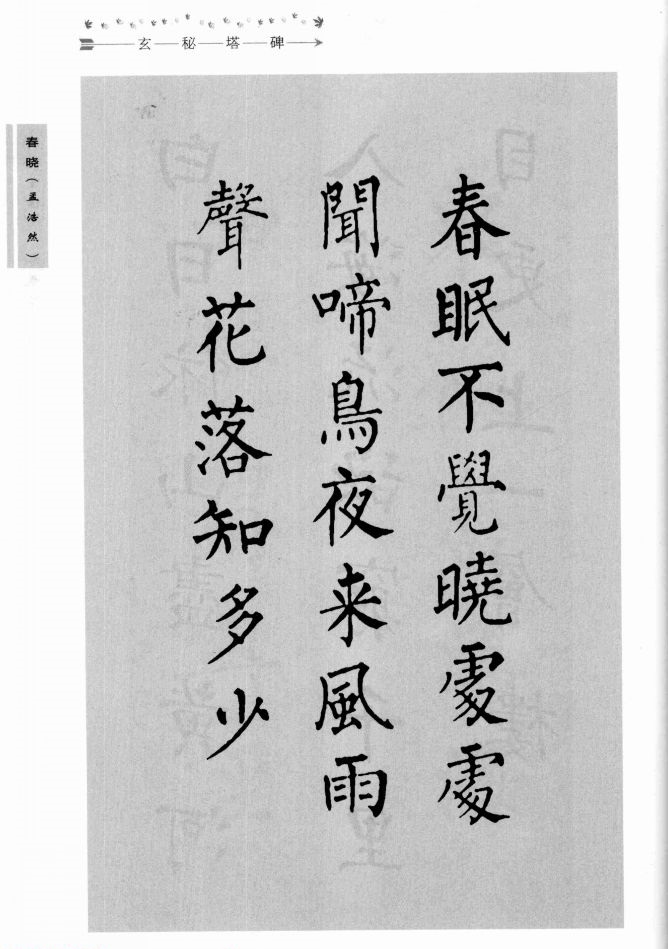 玄秘塔碑
春晓（孟浩然）
春眠不覺曉處處
聞啼鳥夜来風雨
聲花落知多少